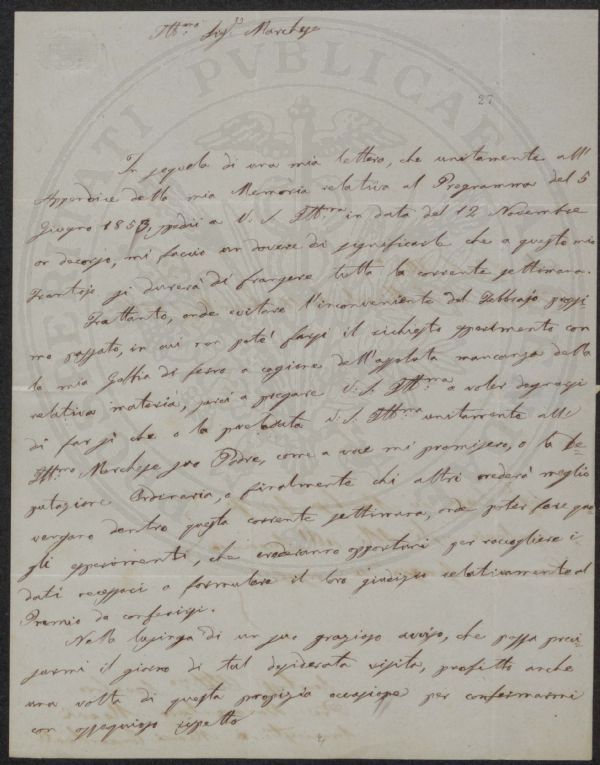 Ill.mo Sig.r Marchese
27
In seguela di una mia lettera, che unitamente all'
Appendice della mia Memoria relativa al Programma del 5
Giugno 1853, spedii a V. S. Ill.ma in data del 12 Novembre
or decorso, mi faccio un dovere di significarle che a questo mio
Frantojo si durerà di frangere tutta la corrente settimana.
Frattanto, onde evitare l'inconveniente del Febbrajo prossi-
mo passato, in cui non poté farsi il richiesto sperimento con
la mia Gabbia di ferro a cagione dell'assoluta mancanza della
relativa materia, sarei a pregare V. S. Ill.ma a voler degnarsi
di far sì che o la prelodata V. S. Ill.ma unitamente all'
Ill.mo Marchese suo Padre, come a voce mi promisero, o la De-
putazione Ordinaria, o finalmente chi altri crederà meglio
vengano dentro questa corrente settimana, onde poter fare que-
gli esperimenti, che crederanno opportuni per raccogliere i
dati necessarj a formulare il loro giudizio relativamente al
Premio da conferirsi.
Nella lusinga di un suo grazioso avviso, che possa preci-
sarmi il giorno di tal desiderata visita, profitto anche
una volta di questa propizia occasione per confermarmi
con ossequioso rispetto